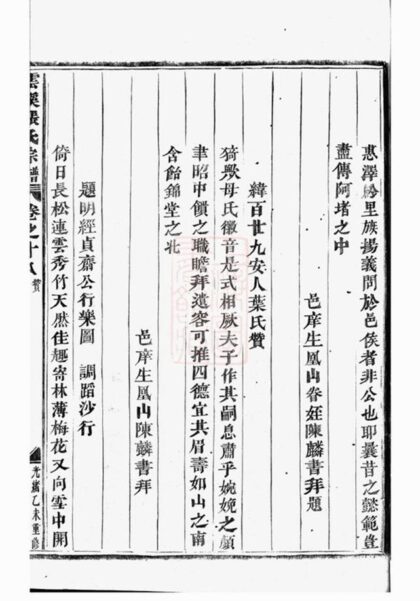 惠澤於里族揚義問於邑侯者非公也耶曩昔之懿範豈
盡傳阿堵之中
邑庠生鳳山眷姪陳麟書拜題
緯百廿九安人葉氏贊
猗歟母氏徽音是式相厥夫子作其嗣息肅乎婉娩之顏
聿昭中饋之職瞻拜遺容可推四德宜其眉壽如山之南
含飴錦堂之北
邑庠生鳳山陳麟書拜
題明經貞齋公行樂圖 調蹈沙行
倚日長松連雲秀竹天然佳趣寄林薄梅花又向雪中開
氏宗譜 卷之十八 贊
光緒乙未重修